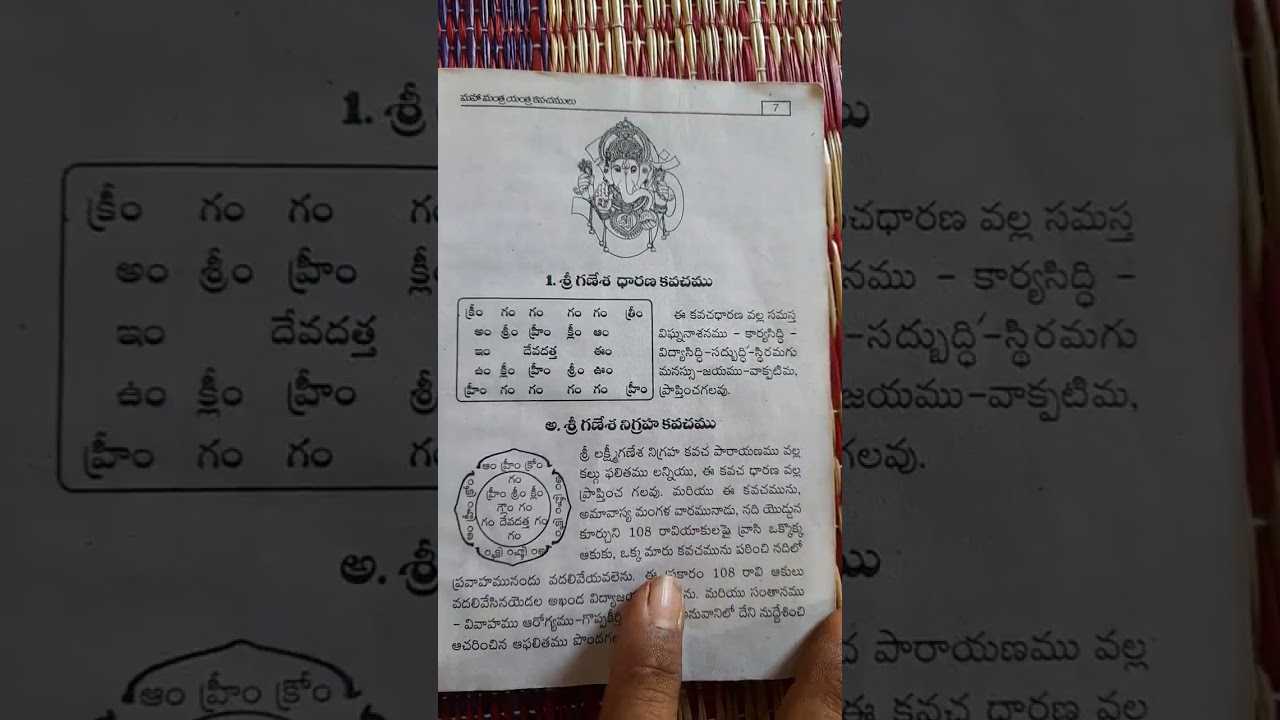 మహా మంత్ర యంత్ర కవచములు
7
1. శ్రీ గణేశ ధారణ కవచము
క్రీం గం గం గం గం త్రీం
అం శ్రీం హ్రీం క్లీం ఆం
ఇం దేవదత్త ఈం
ఉం క్లీం హ్రీం శ్రీం ఊం
హ్రీం గం గం గం గం హ్రీం
ఈ కవచధారణ వల్ల సమస్త
విఘ్ననాశనము - కార్యసిద్ధి -
విద్యాసిద్ధి-సద్బుద్ధి-స్థిరమగు
మనస్సు-జయము-వాక్పటిమ,
ప్రాప్తించగలవు.
అ. శ్రీ గణేశ నిగ్రహ కవచము
ఆం హ్రీం క్రోం
గం
హ్రీం శ్రీం క్లీం
గ్లౌం గం
గం దేవదత్త గం
గం
శ్రీ లక్ష్మీగణేశ నిగ్రహ కవచ పారాయణము వల్ల
కల్గు ఫలితము లన్నియు, ఈ కవచ ధారణ వల్ల
ప్రాప్తించ గలవు. మరియు ఈ కవచమును,
అమావాస్య మంగళ వారమునాడు, నది యొడ్డున
కూర్చుని 108 రావియాకులపై వ్రాసి ఒక్కొక్క
ఆకుకు, ఒక్క మారు కవచమును పఠించి నదిలో
ప్రవాహమునందు వదలివేయవలెను. ఈ ప్రకారం 108 రావి ఆకులు
వదలివేసినయెడల అఖండ ను. మరియు సంతానము
- వివాహము ఆరోగ్యము-గొప్పకీర్తి నువానిలో దేని నుద్దేశించి
ఆచరించిన ఆఫలితము